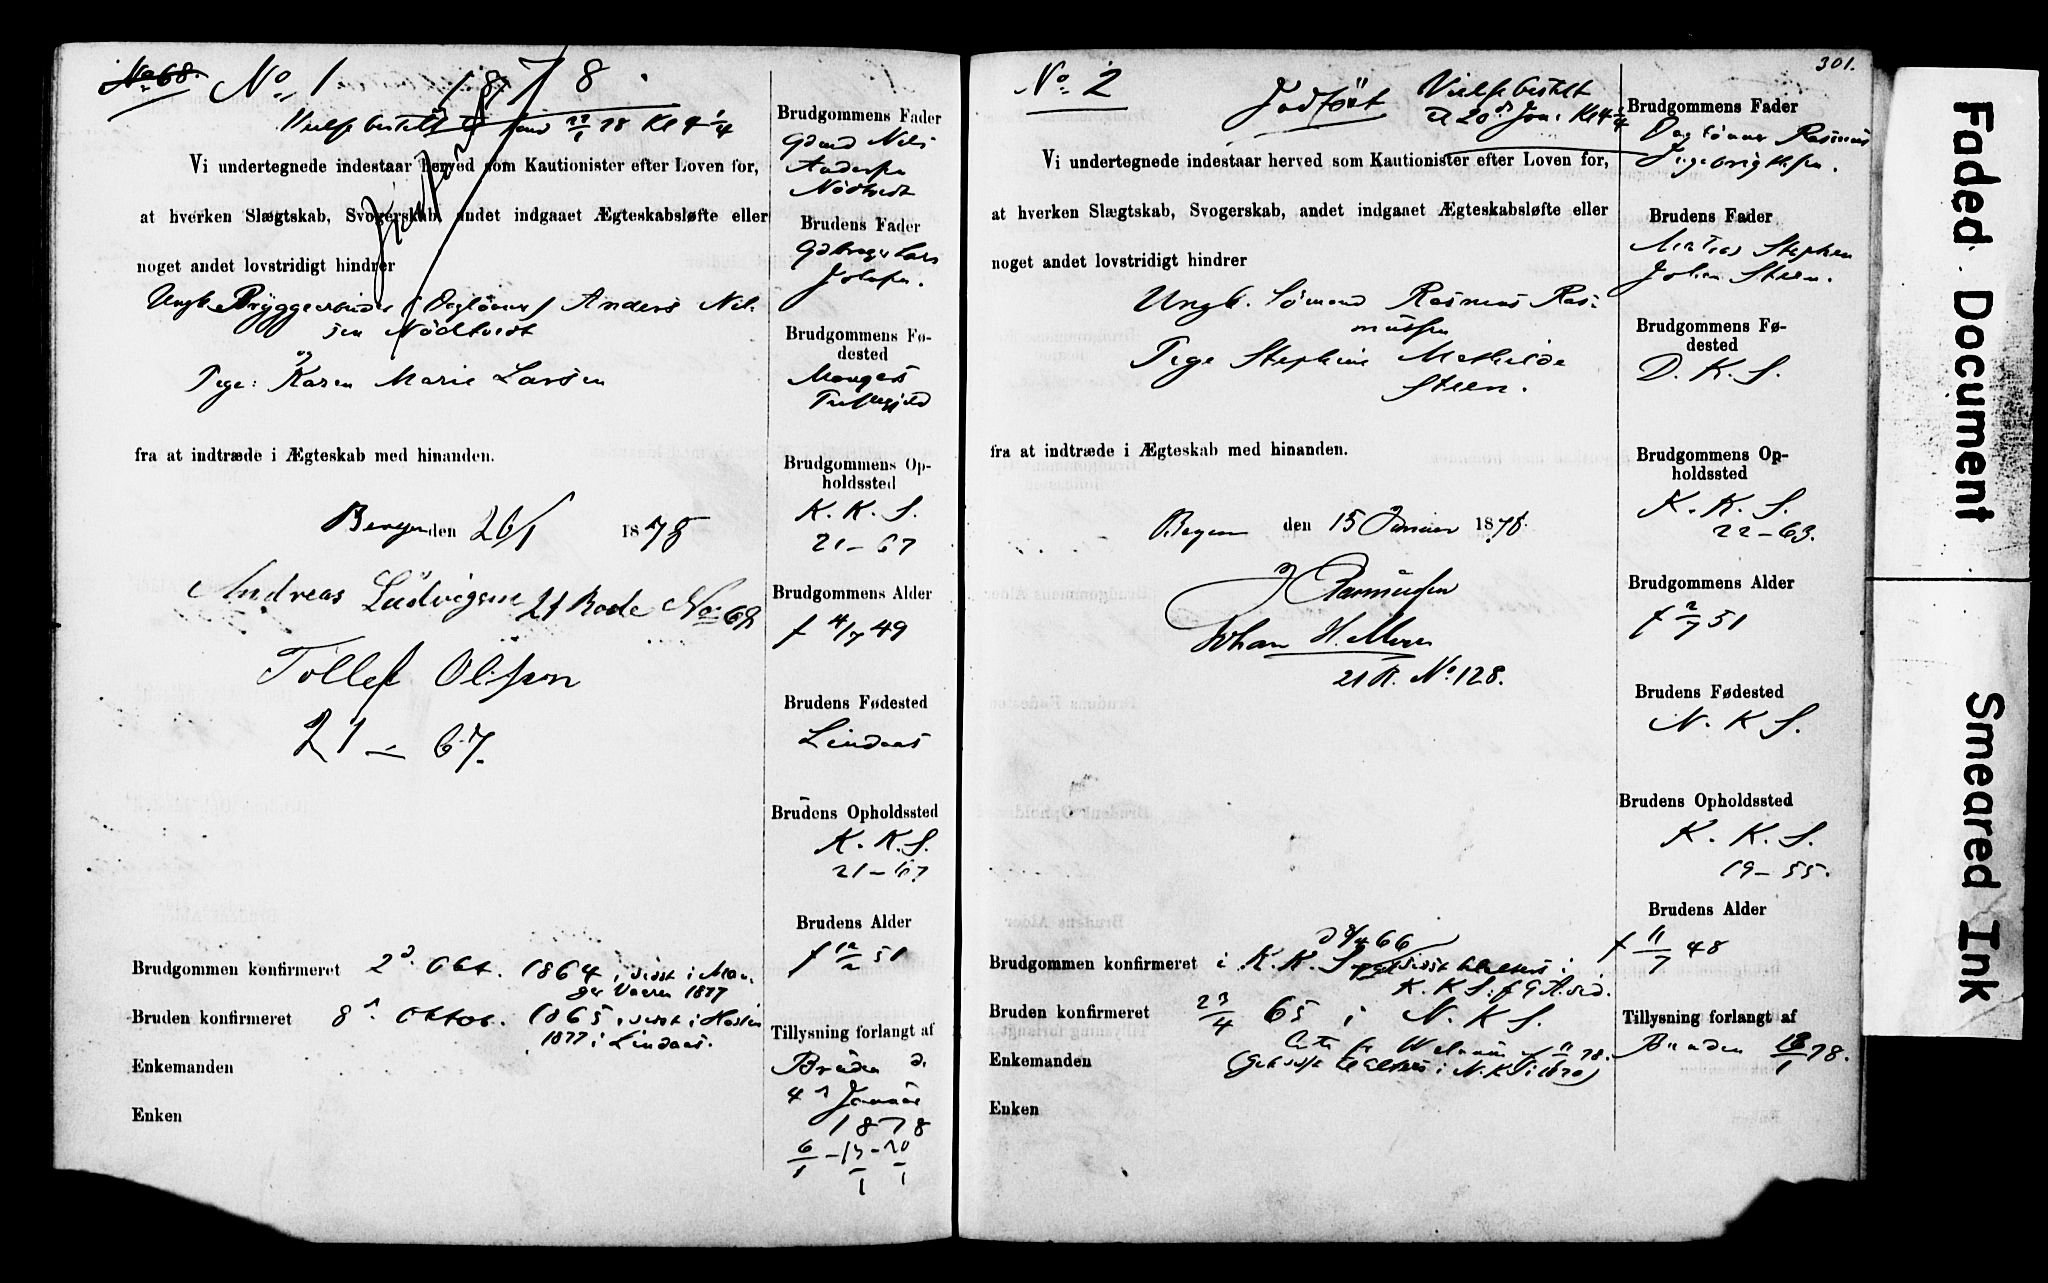 No 68.
No 1
1878
Vielse bestilt
Kl 4 1/4
Vi undertegnede indestaar herved som Kautionister efter Loven for,
at hverken Slægtskab, Svogerskab, andet indgaaet Ægteskabsløfte eller
noget andet lovstridigt hindrer
Ungk. Bryggearbeider (Dagløner) Anders Nil-
sen Nödtvedt
og
Pige: Karen Marie Larsen
fra at indtræde i Ægteskab med hinanden.
Bergen den 26/1 1878
Andreas Ludvigsen 21 Rode No 68
Tollef Olsson
21 – 67.
Brudgommen konfirmeret 2d Okt. 1864, sidst i Man-
ger Vaaren 1877
Bruden konfirmeret 8d Oktob. 1865, sidst i Høsten
1877 i Lindaas.
Enkemanden
Enken
Brudgommens Fader
Gdmd Nils
Anderssen
Nödtvedt
Brudens Fader
Gdbruger Lars
Brudgommens Fø-
dested
Mangers
Præstegjeld
Brudgommens Op-
holdssted
K. K. S.
21 – 67
Brudgommens Alder
f 4/7 49
Brudens Fødested
Lindaas
Brudens Opholdssted
K. K. S.
21 – 67
Brudens Alder
f 12/2 51
Tillysning forlangt af
Bruden d.
4d Januar
1878
6/1 – 13/1 – 20/1
301.
No 2
Jndført
Vielse bestilt
d 20d Jan. Kl 4 1/4
Vi undertegnede indestaar herved som Kautionister efter Loven for,
at hverken Slægtskab, Svogerskab, andet indgaaet Ægteskabsløfte eller
noget andet lovstridigt hindrer
Ungk. Sömand Rasmus Ras-
mussen
Pige Stephine Mathilde
Steen.
fra at indtræde i Ægteskab med hinanden.
Bergen den 15 Januar 1878.
J Rasmussen
Johan H.
21 R. No 128.
Brudgommen konfirmeret i K. K. S.
K. K. S.
Bruden konfirmeret 23/4 65 i N. K. S.
Enkemanden
Enken
Brudgommens Fader
Dagløner Rasmus
Brudens Fader
Mathias Stephen
Johan Steen.
Brudgommens Fø-
dested
D. K. S.
Brudgommens Op-
holdssted
K. K. S.
22 – 63.
Brudgommens Alder
f 2/7 51
Brudens Fødested
N. K. S.
Brudens Opholdssted
K. K. S.
19 – 55.
Brudens Alder
f 11/7 48
Tillysning forlangt af
Bruden
78.
Faded Document
Smeared Ink